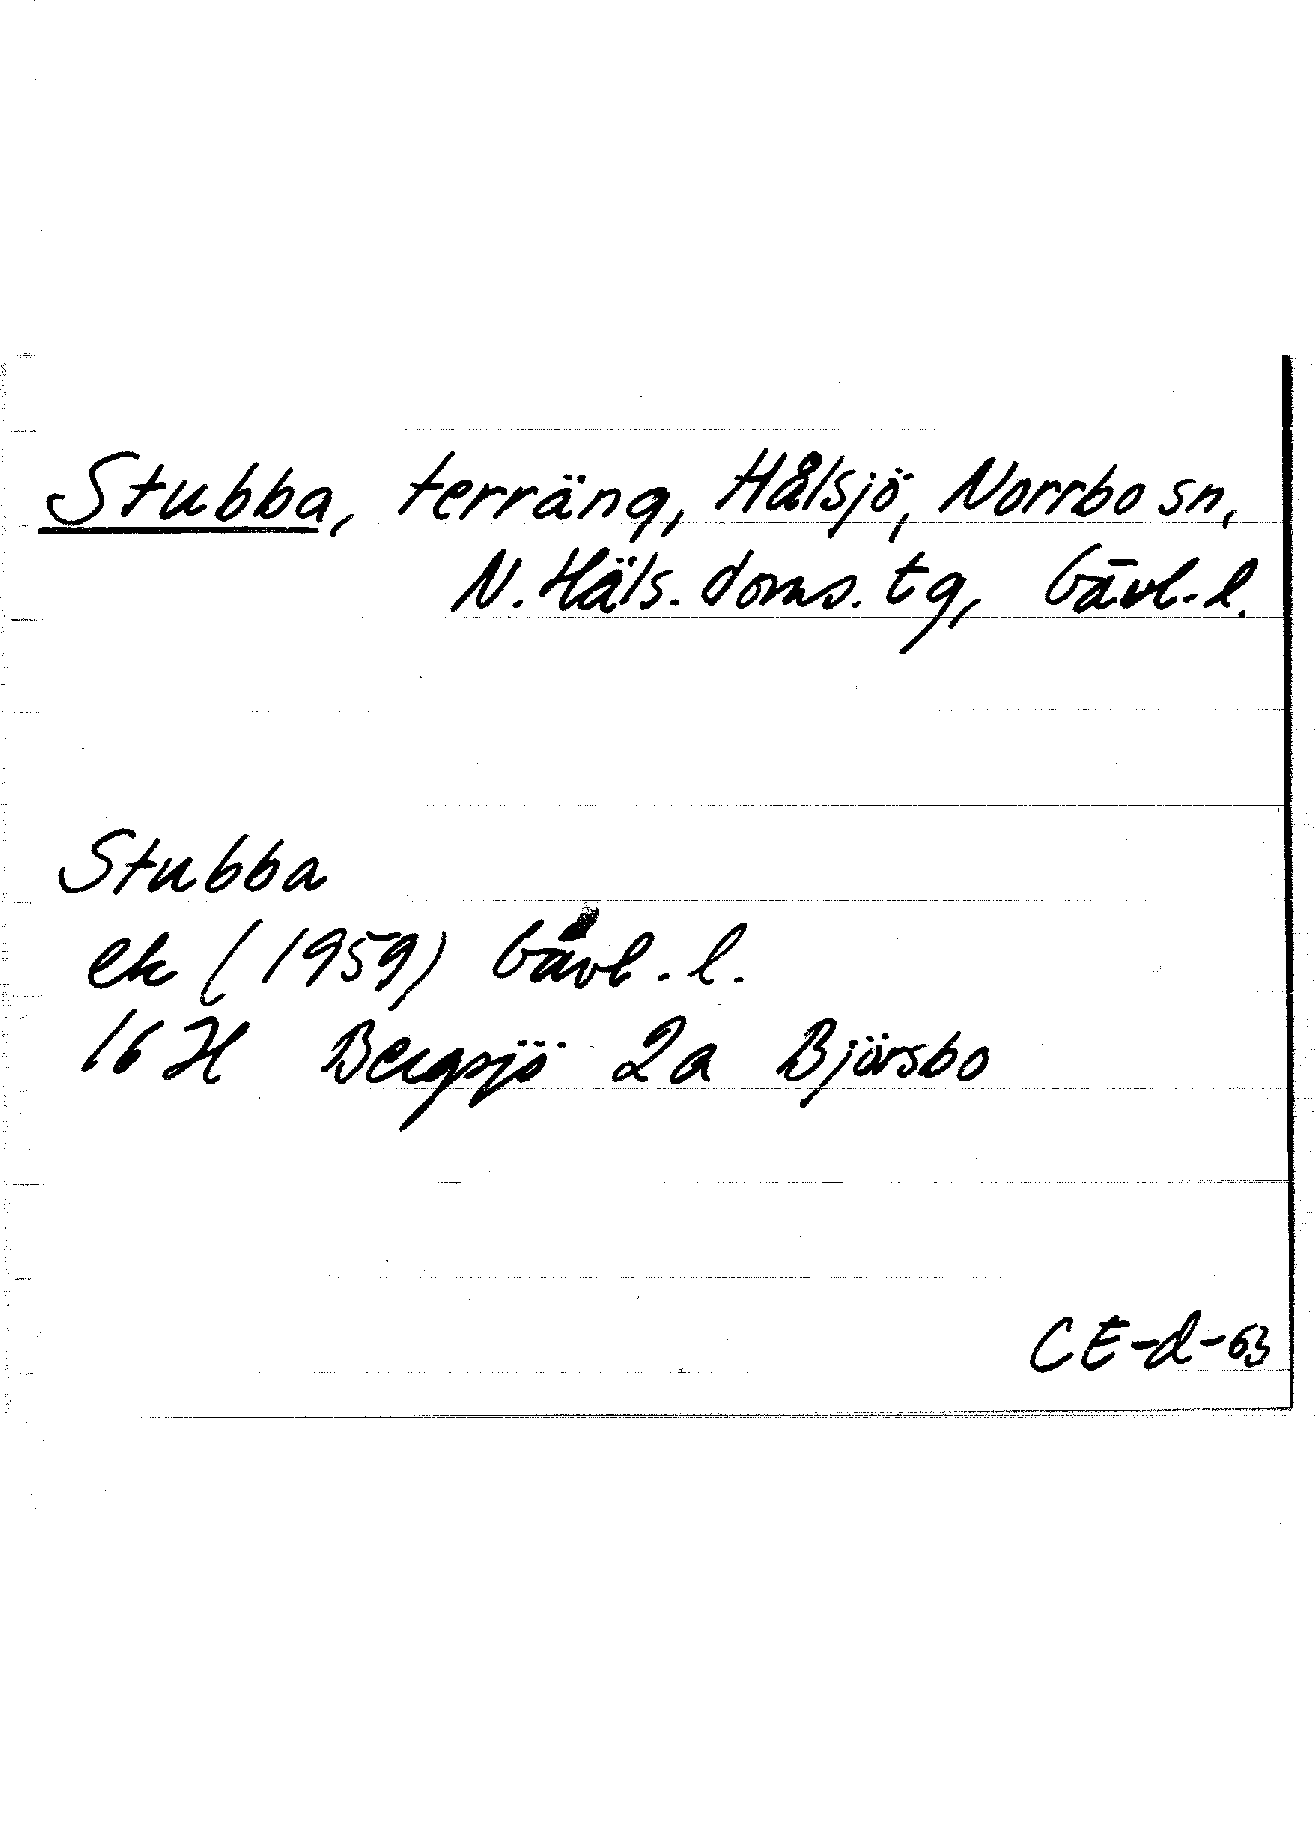 Stubba, terräng, Hålsjö, Norrbo sn,
N. Häls. doms. tg, Gävl. l.
Stubba
ek (1959) Gävl. l.
16 H Bergsjö 2a Björsbo
CE-d-63